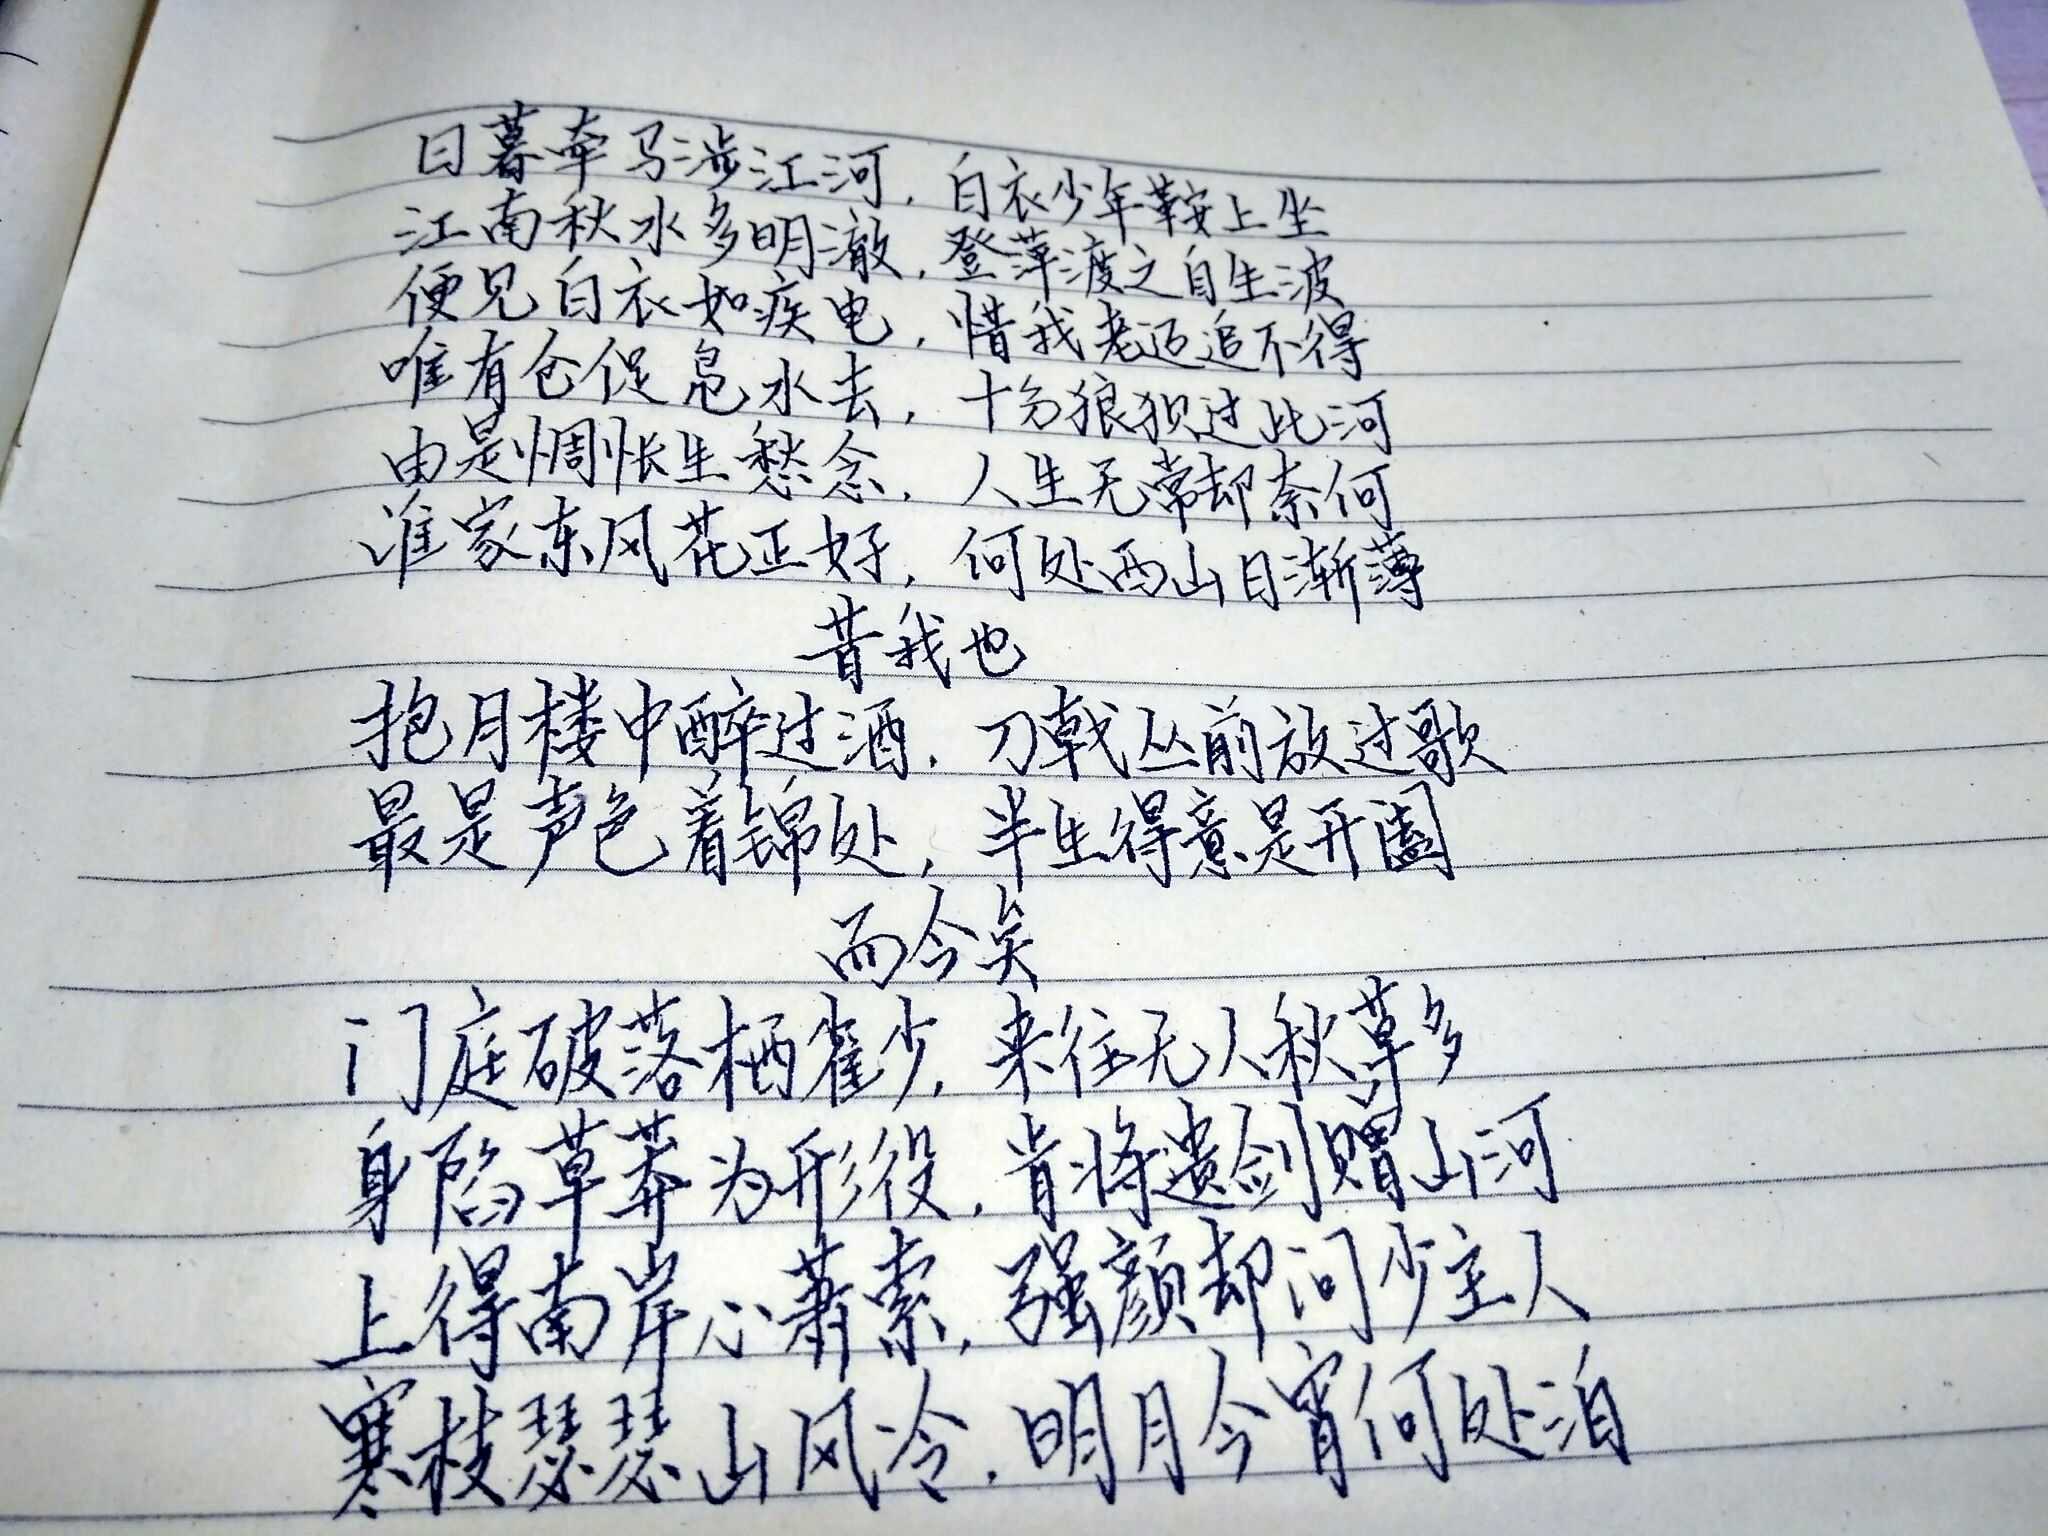 日暮牵马涉江河，白衣少年鞍上坐
江南秋水多明澈，登萍渡之自生波
便见白衣如疾电，惜我老迈追不得
唯有仓促凫水去，十分狼狈过此河
由是惆怅生愁念，人生无常却奈何
谁家东风花正好，何处西山日渐薄
昔我也
抱月楼中醉过酒，刀戟丛前放过歌
最是声色着锦处，半生得意是开阖
而今矣
门庭破落栖雀少，来往无人秋草多
身陷草莽为形役，肯将遗剑赠山河
上得南岸心萧索，强颜却问少主人
寒枝瑟瑟山风冷，明月今宵何处泊